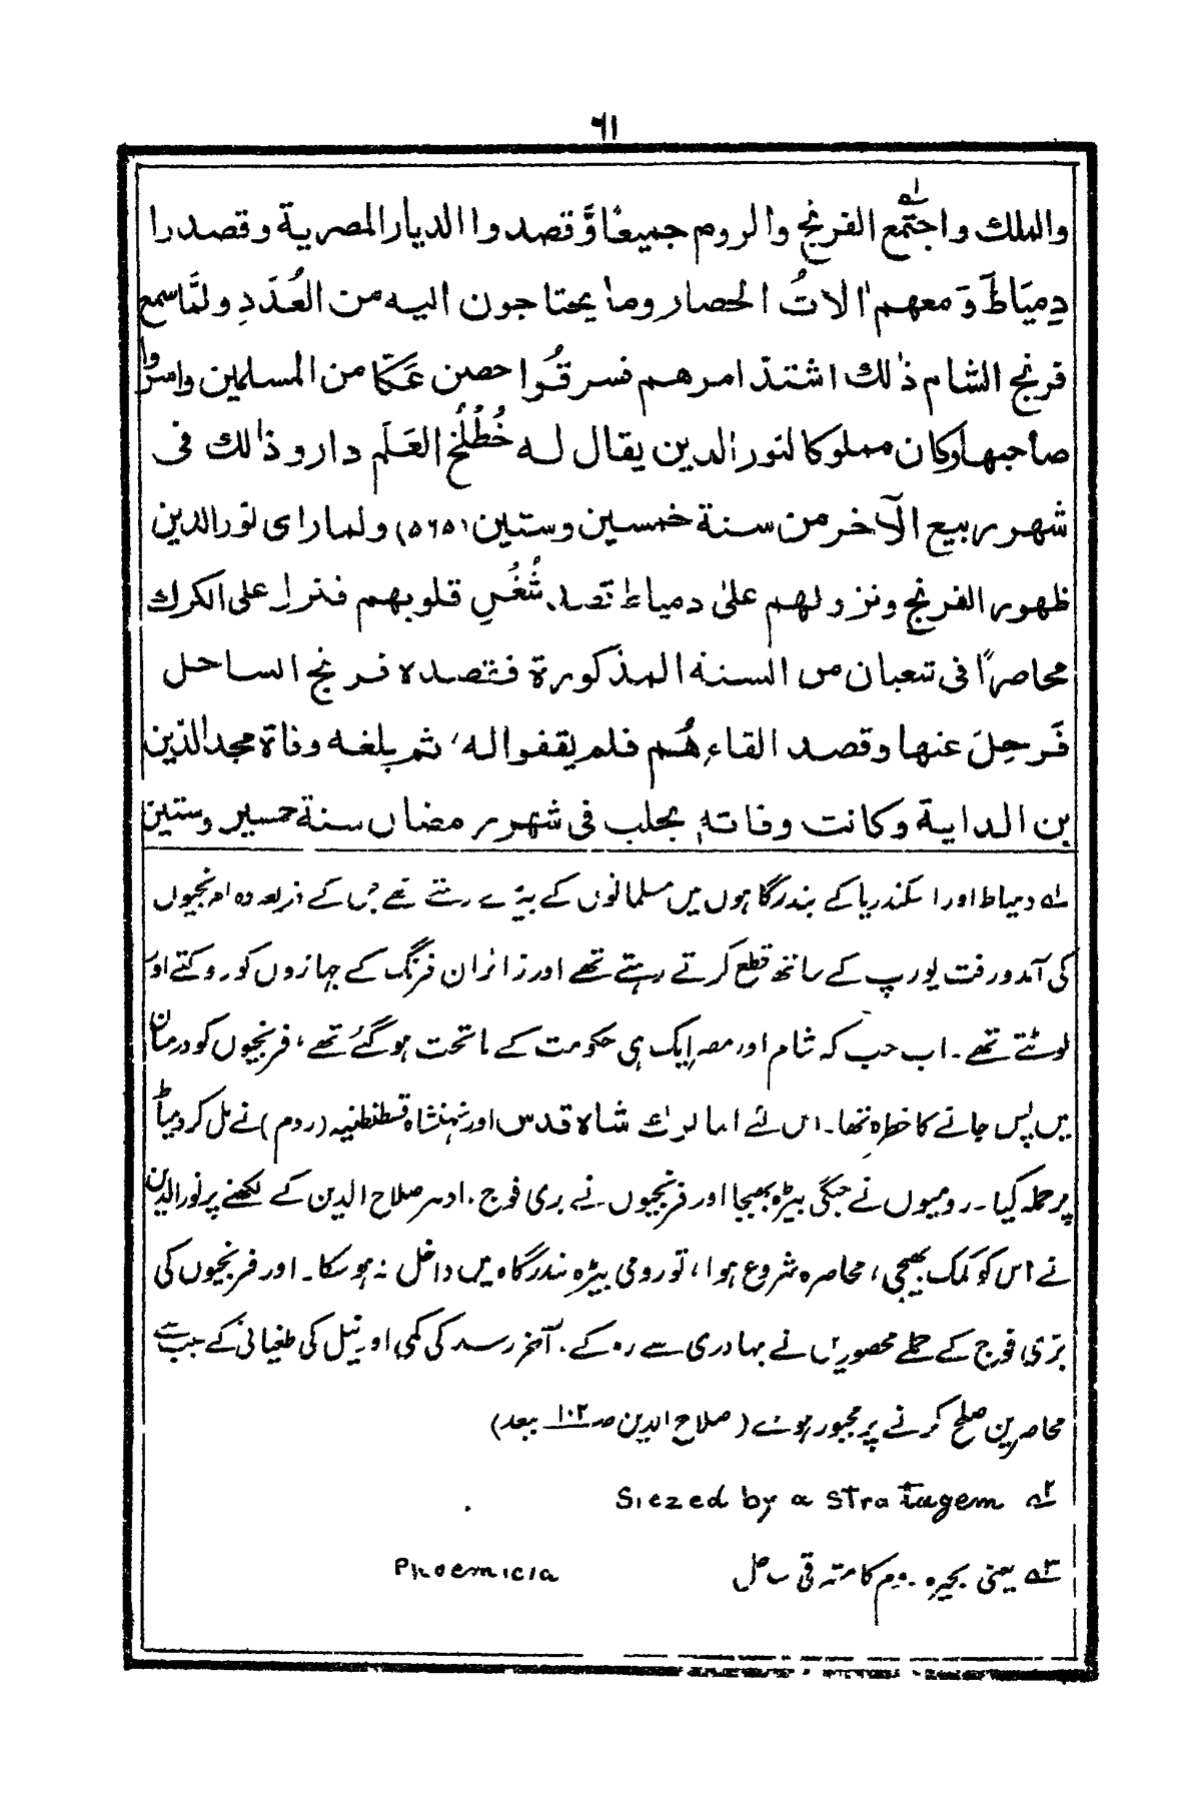 ٦١
والملك واجتمع الفرنج والروم جميعًا وَّقصدوا الديار المصرية وقصدرا
دِميَاطَ وَ معهم اٰلاتُ الحصار وما يحتاجون اليه من العُدَدِ ولمَّا سمع
فرنج الشام ذٰلك اشتدّ امرهم فسرقُوا حصن عَكّا من المسلمين واسروا
صاحبها وكان مملوكا لنور الدين يقال له خُطْلُخ العَلَم دار وذٰلك فى
شهر ربيع الآخر من سنة خمسين وستين (۵۶۵) ولما راى نور الدين
ظهور الفرنج ونزولهم علىٰ دمياط قصد شُغُلِ قلوبهم فنزل على الكرك
محاصرًا فى شعبان من السنه المذكورة فقصده فرنج الساحل
فَرحِلَ عنها وقصد القاءِ هُم فلم يقفوا له، ثم بلغه وفاة مجد الدّين
بن الداية وكانت وفاته بحلب فى شهر رمضان سنة خمسير وستين
لـه دمیاط اور اسکندریا کے بندرگاہوں میں مسلمانوں کے بیڑے رہتے تھے جس کے ذریعہ وہ افرنجیوں
کی آمدورفت یورپ کے ساتھ قطع کرتے رہتے تھے اور زائران فرنگ کے جہازوں کو روکتے اور
لوٹتے تھے۔ اب جب کہ شام اور مصر ایک ہی حکومت کے ماتحت ہوگئے تھے، فرنجیوں کو درمیان
میں پس جانے کا خطرہ تھا۔ اس لئے امالرك شاہ قدس اور شہنشاہ قسطنطنیہ (روم) نے مل کر دمیاط
پر حملہ کیا۔ رومیوں نے جنگی بیڑہ بھیجا اور فرنجیوں نے بری فوج۔ ادھر صلاح الدین کے لکھنے پر نورالدین
نے اس کو کمک بھیجی، محاصرہ شروع ہوا، تو رومی بیڑہ بندرگاہ میں داخل نہ ہوسکا۔ اور فرنجیوں کی
بڑی فوج کے حملے محصورین نے بہادری سے روکے۔ آخر رسد کی کمی اور نیل کی طغیانی کے سبب سے
محاصرین صلح کرنے پر مجبور ہوئے (صلاح الدین صـ ۱۰۲ ببعد)
۲ـه Siezed by a stratagem
۳ـه یعنی بحیرہ روم کا مشرقی ساحل Phoemicia